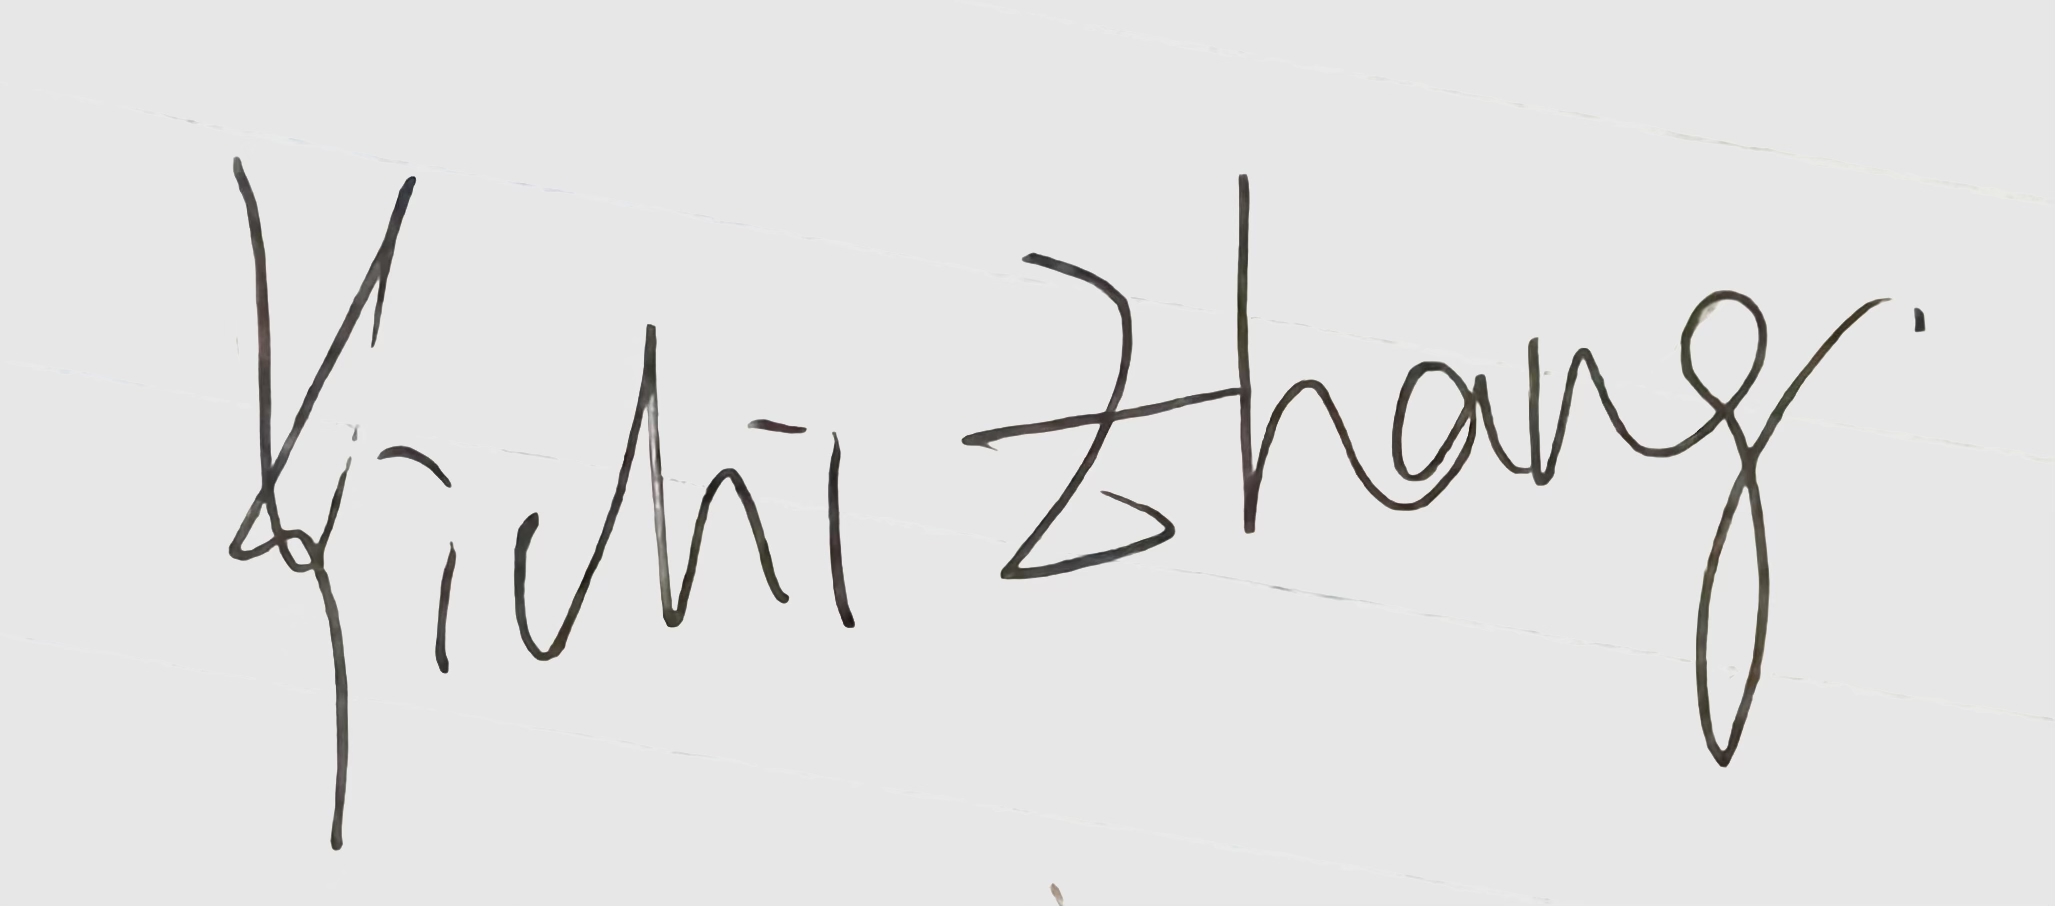 Kichi Zhang.